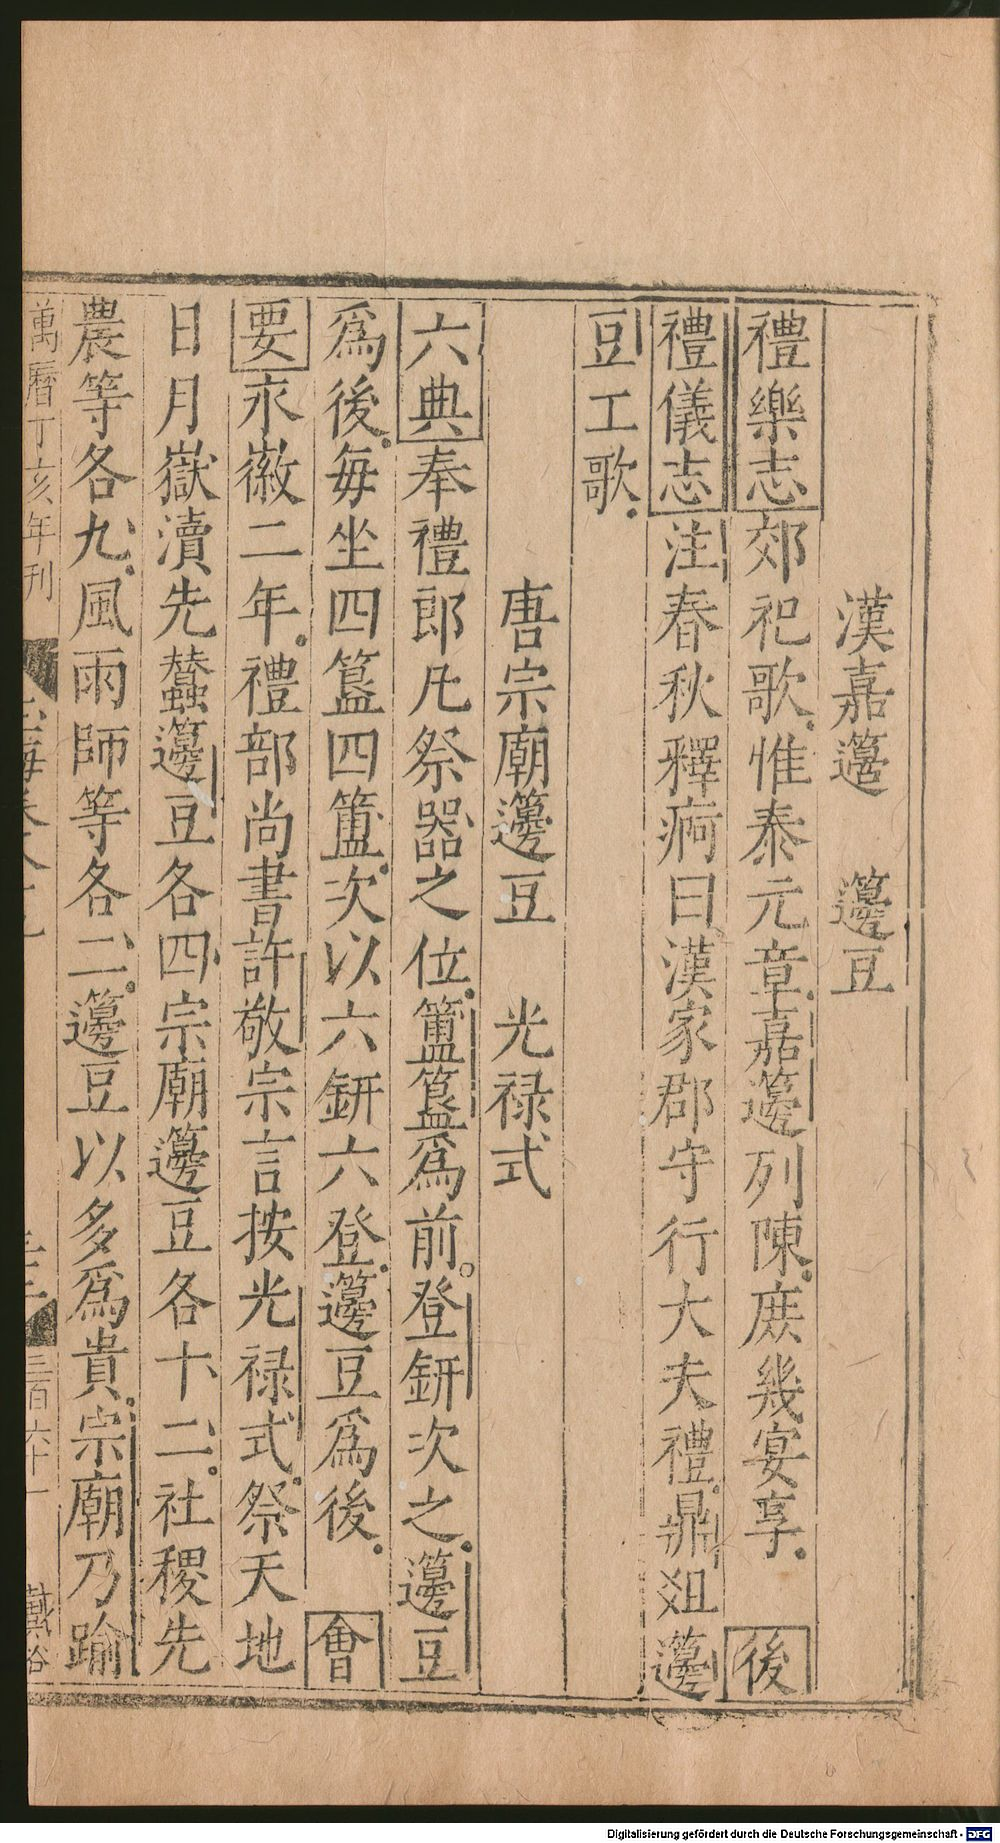 漢嘉籩　籩豆
禮樂志郊祀歌惟泰元章嘉籩列陳庶幾宴享　後
禮儀志注春秋釋痾曰漢家郡守行大夫禮鼎俎籩
豆工歌
唐宗廟籩豆　光禄式
六典奉禮郎凡祭器之位簠簋爲前登鈃次之籩豆
爲後每坐四簋四簠次以六鈃六登籩豆爲後　會
要永徽二年禮部尚書許敬宗言按光禄式祭天地
日月嶽瀆先蠶籩豆各四宗廟籩豆各十二社稷先
農等各九風雨師等各二籩豆以多爲貴宗廟乃踰
萬曆丁亥年刊　三百六十一　戴裕
Digitalisierung gefördert durch die Deutsche Forschungsgemeinschaft - DFG